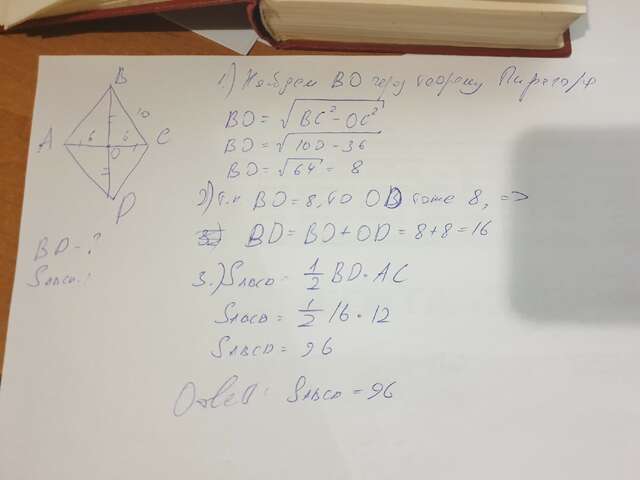 B
10
A
6
6
C
O
D
BD - ?
SABCD - ?
1) Найдем BO через теорему Пифагора
BO = √BC² - OC²
BO = √100 - 36
BO = √64 = 8
2) т.к BO = 8, то OD тоже 8, =>
BD = BO + OD = 8 + 8 = 16
3.) SABCD = 1/2 BD · AC
SABCD = 1/2 16 · 12
SABCD = 96
Ответ: SABCD = 96